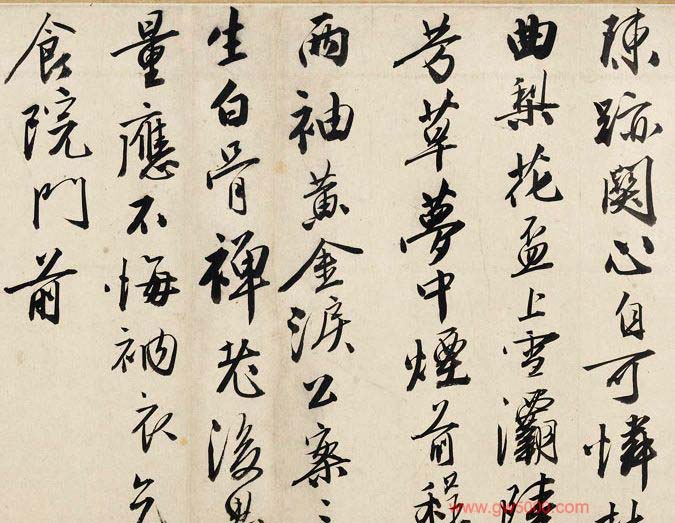 陳跡關心自可憐杜
曲梨花盃上雪灞陵
芳草夢中煙前程
兩袖黃金淚公案三
生白骨禪老後思
量應不悔衲衣乞
食院門前